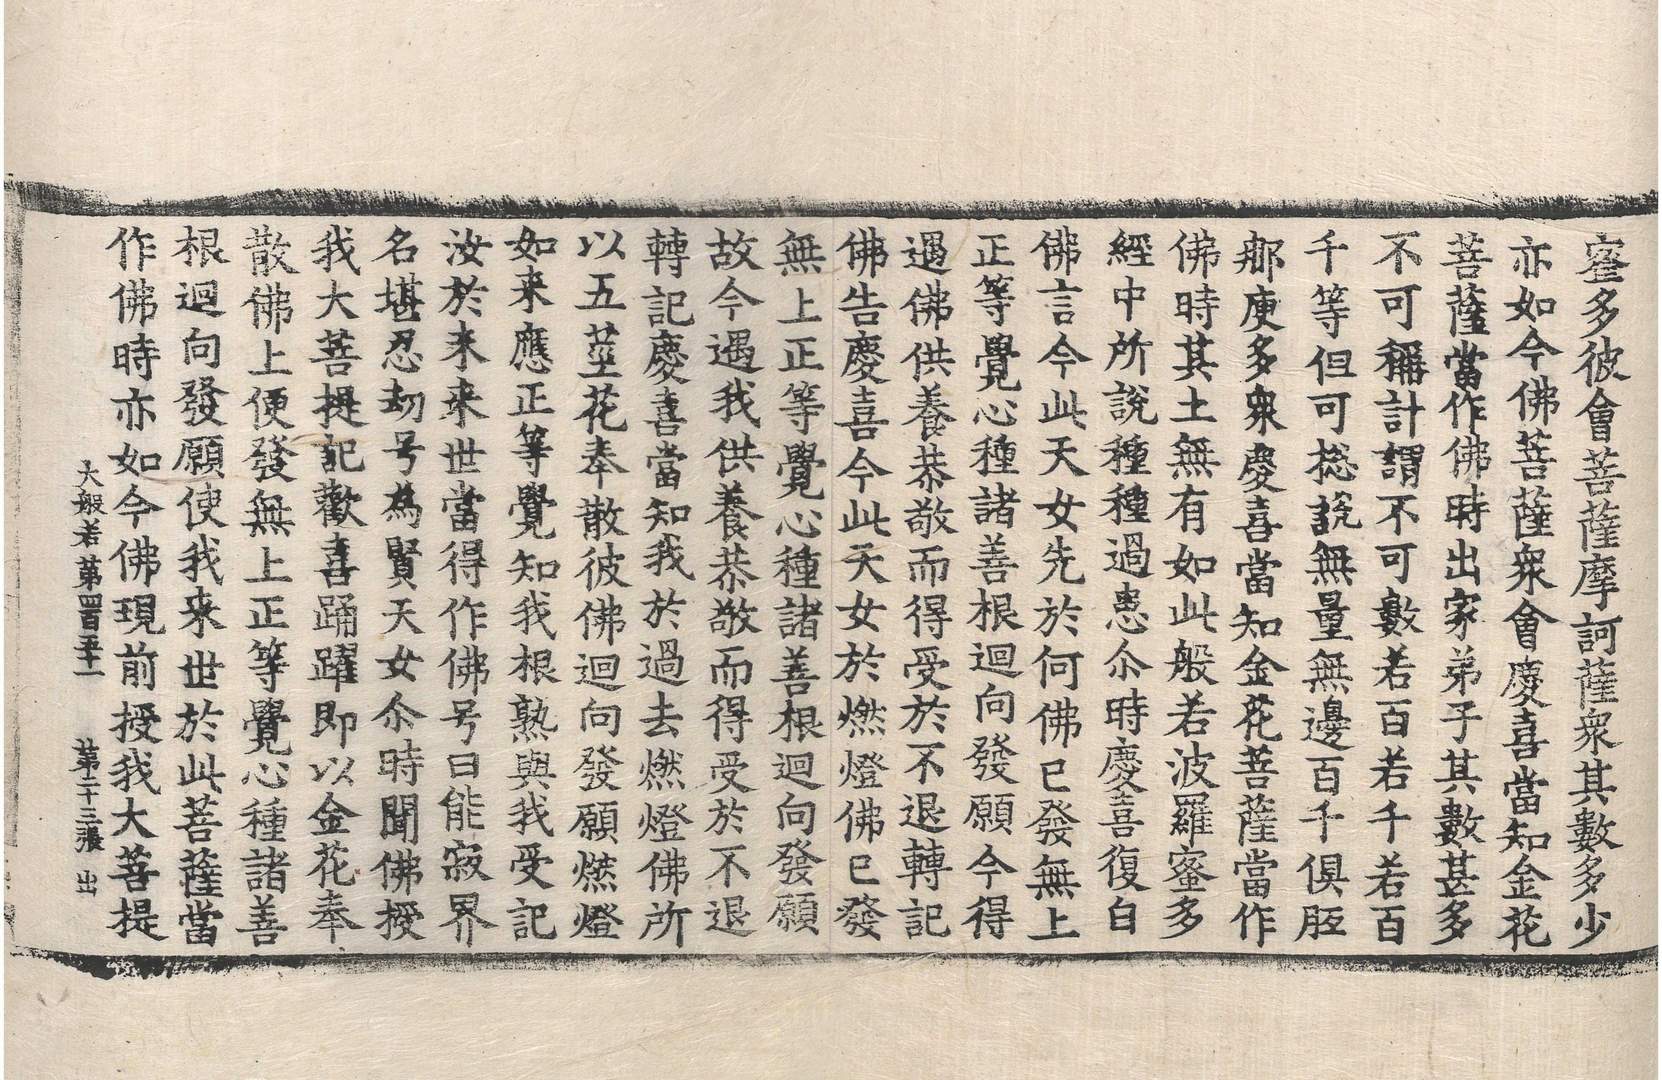 蜜多彼會菩薩摩訶薩衆其數多少
亦如今佛菩薩衆會慶喜當知金花
菩薩當作佛時出家弟子其數甚多
不可稱計謂不可數若百若千若百
千等但可捴說無量無邊百千俱胝
那庾多衆慶喜當知金花菩薩當作
佛時其土無有如此般若波羅蜜多
經中所說種種過患尒時慶喜復白
佛言今此天女先於何佛已發無上
正等覺心種諸善根迴向發願今得
遇佛供養恭敬而得受於不退轉記
佛告慶喜今此天女於燃燈佛已發
無上正等覺心種諸善根迴向發願
故今遇我供養恭敬而得受於不退
轉記慶喜當知我於過去燃燈佛所
以五莖花奉散彼佛迴向發願燃燈
如来應正等覺知我根熟與我受記
汝於来世當得作佛号曰能寂界
名堪忍劫号為賢天女尒時聞佛授
我大菩提記歡喜踊躍即以金花奉
散佛上便發無上正等覺心種諸善
根迴向發願使我来世於此菩薩當
作佛時亦如今佛現前授我大菩提
大般若第四百五十一 第二十三張 出